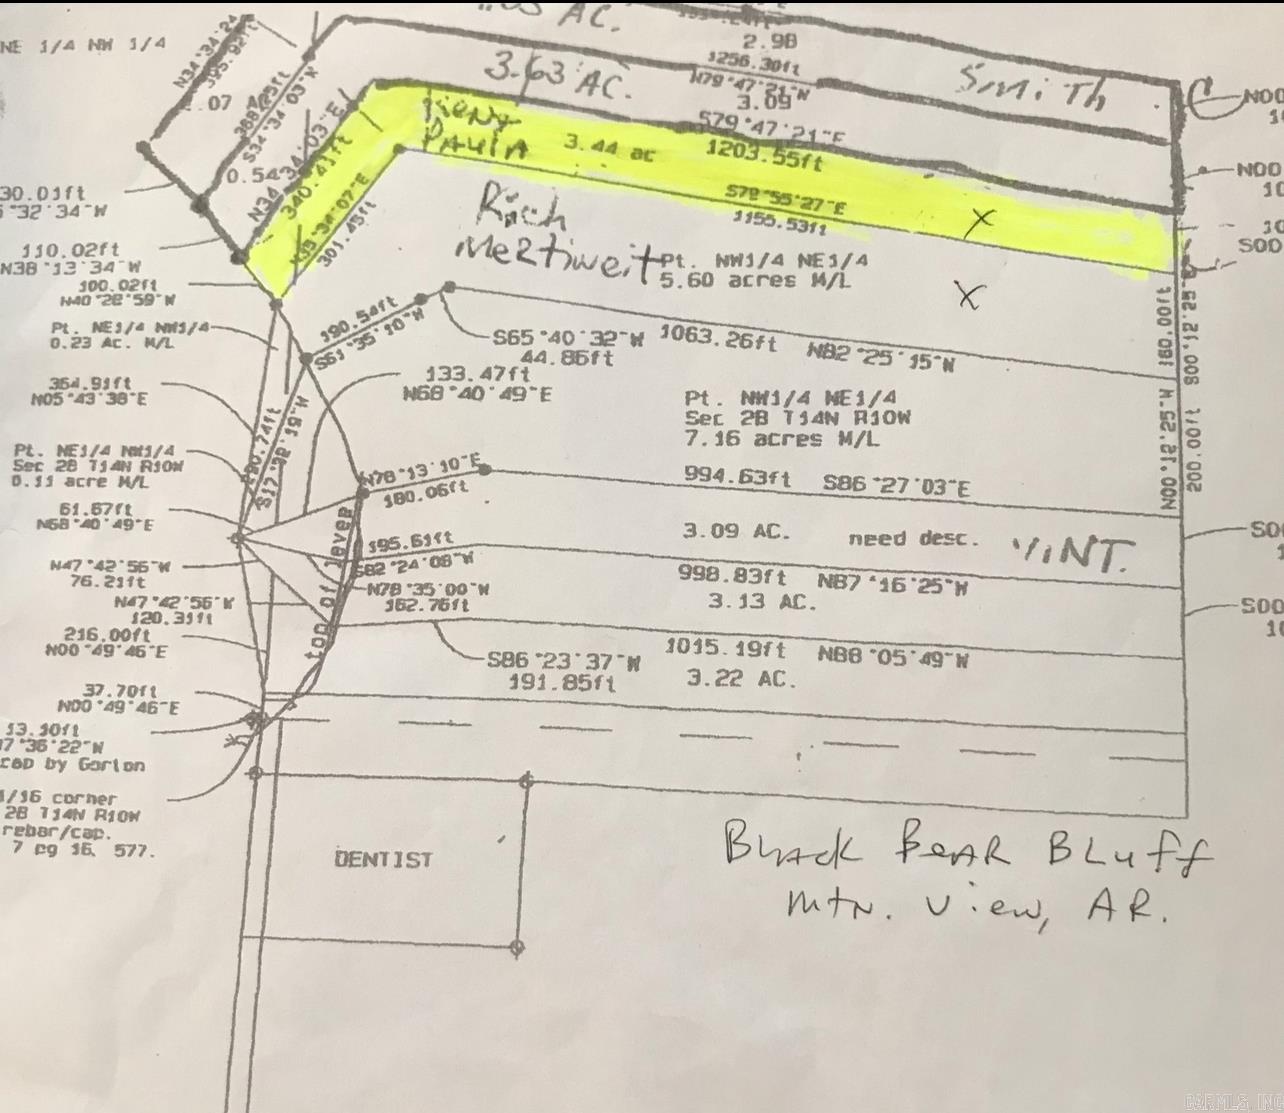 AC.
NE 1/4 NW 1/4
N34°34'24
2.98
1256.30ft
N79°47'21"W
3.63 AC.
3.09
Smith
S79°47'21"E
.07
S34°34'03"W
0.54
N34°34'03"E
340.41ft
Kent
Paula
3.44 ac
1203.55ft
S78°55'27"E
1155.53ft
N35°34'07"E
301.45ft
Rich
Mertiweit
Pt. NW1/4 NE1/4
5.60 acres M/L
X
X
C
N00
N00
10
S00
30.01ft
°32'34"W
110.02ft
N38°13'34"W
100.02ft
N40°28'59"W
Pt. NE1/4 NW1/4
0.23 Ac. M/L
190.54ft
S61°35'10"W
S65°40'32"W
44.86ft
1063.26ft N82°25'15"W
160.00ft
S00°12'25"
N00°12'25"W
200.00ft
133.47ft
N68°40'49"E
364.91ft
N05°43'38"E
190.74ft
S17°32'19"W
Pt. NW1/4 NE1/4
Sec 28 T14N R10W
7.16 acres M/L
Pt. NE1/4 NW1/4
Sec 28 T14N R10W
0.11 acre M/L
N78°13'10"E
180.06ft
994.63ft S86°27'03"E
61.67ft
N68°40'49"E
3.09 AC. need desc. VINT.
S00
195.61ft
S82°24'08"W
N47°42'56"W
76.21ft
998.83ft N87°16'25"W
N78°35'00"W
162.76ft
3.13 AC.
N47°42'56"W
120.31ft
top of levee
S00
10
216.00ft
N00°49'46"E
1015.19ft N88°05'49"W
S86°23'37"W
191.85ft
3.22 AC.
37.70ft
N00°49'46"E
13.10ft
7°36'22"W
cap by Gorton
1/16 corner
28 T14N R10W
rebar/cap.
7 pg 16, 577.
DENTIST
Black Bear Bluff
Mtn. View, AR.
CARMLS, INC